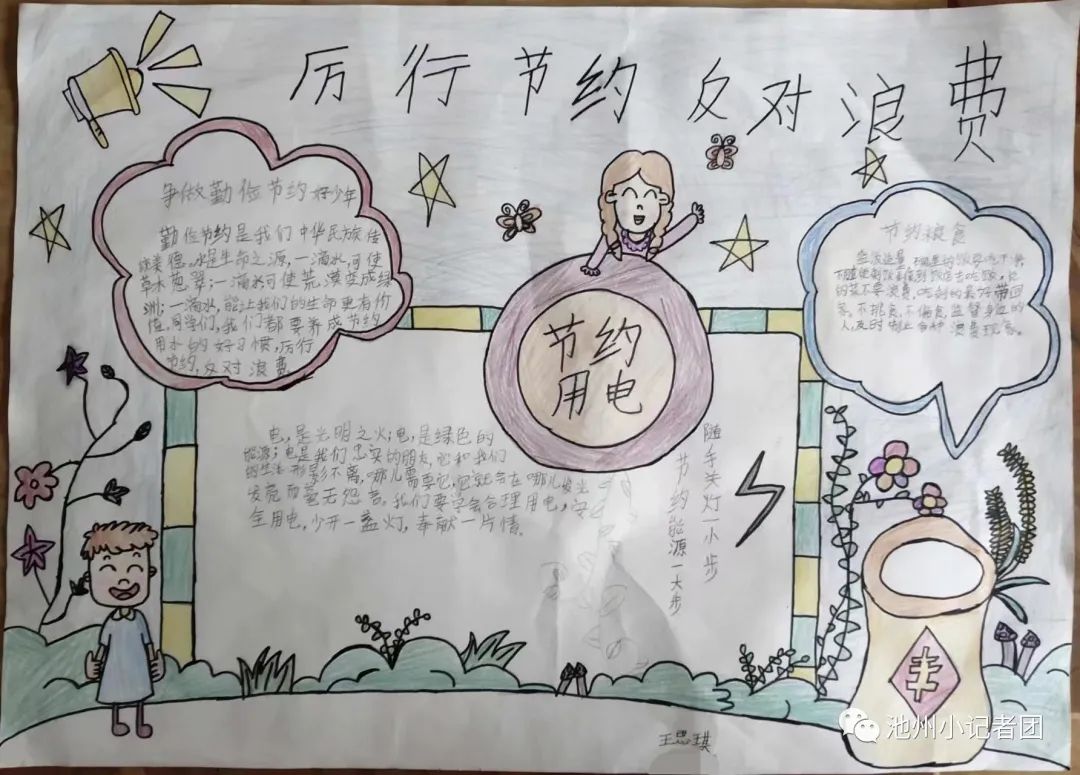 厉行节约 反对浪费
争做勤俭节约好少年
勤俭节约是我们中华民族传
统美德。水是生命之源,一滴水,可使
草木苑翠;一滴水可使荒漠变成绿
洲;一滴水,能让我们的生命更有价
值,同学们,我们都要养成节约
用水的好习惯,厉行
节约,反对浪费
节约
用电
节约粮食
不随便剩饭
的菜不要浪费,吃剩的最好带回
家。不挑食,不偏食,监督身边的
人及时制止各种浪费现象。
电,是光明之火;电,是绿色的
能源;电是我们忠实的朋友,它和我们
的生活形影不离,哪儿需要它,它就会在哪儿发光
发亮而毫无怨言。我们要学会合理用电,安
全用电,少开一盏灯,奉献一片情。
随手关灯一小步
节约能源一大步
丰
王思琪
池州小记者团